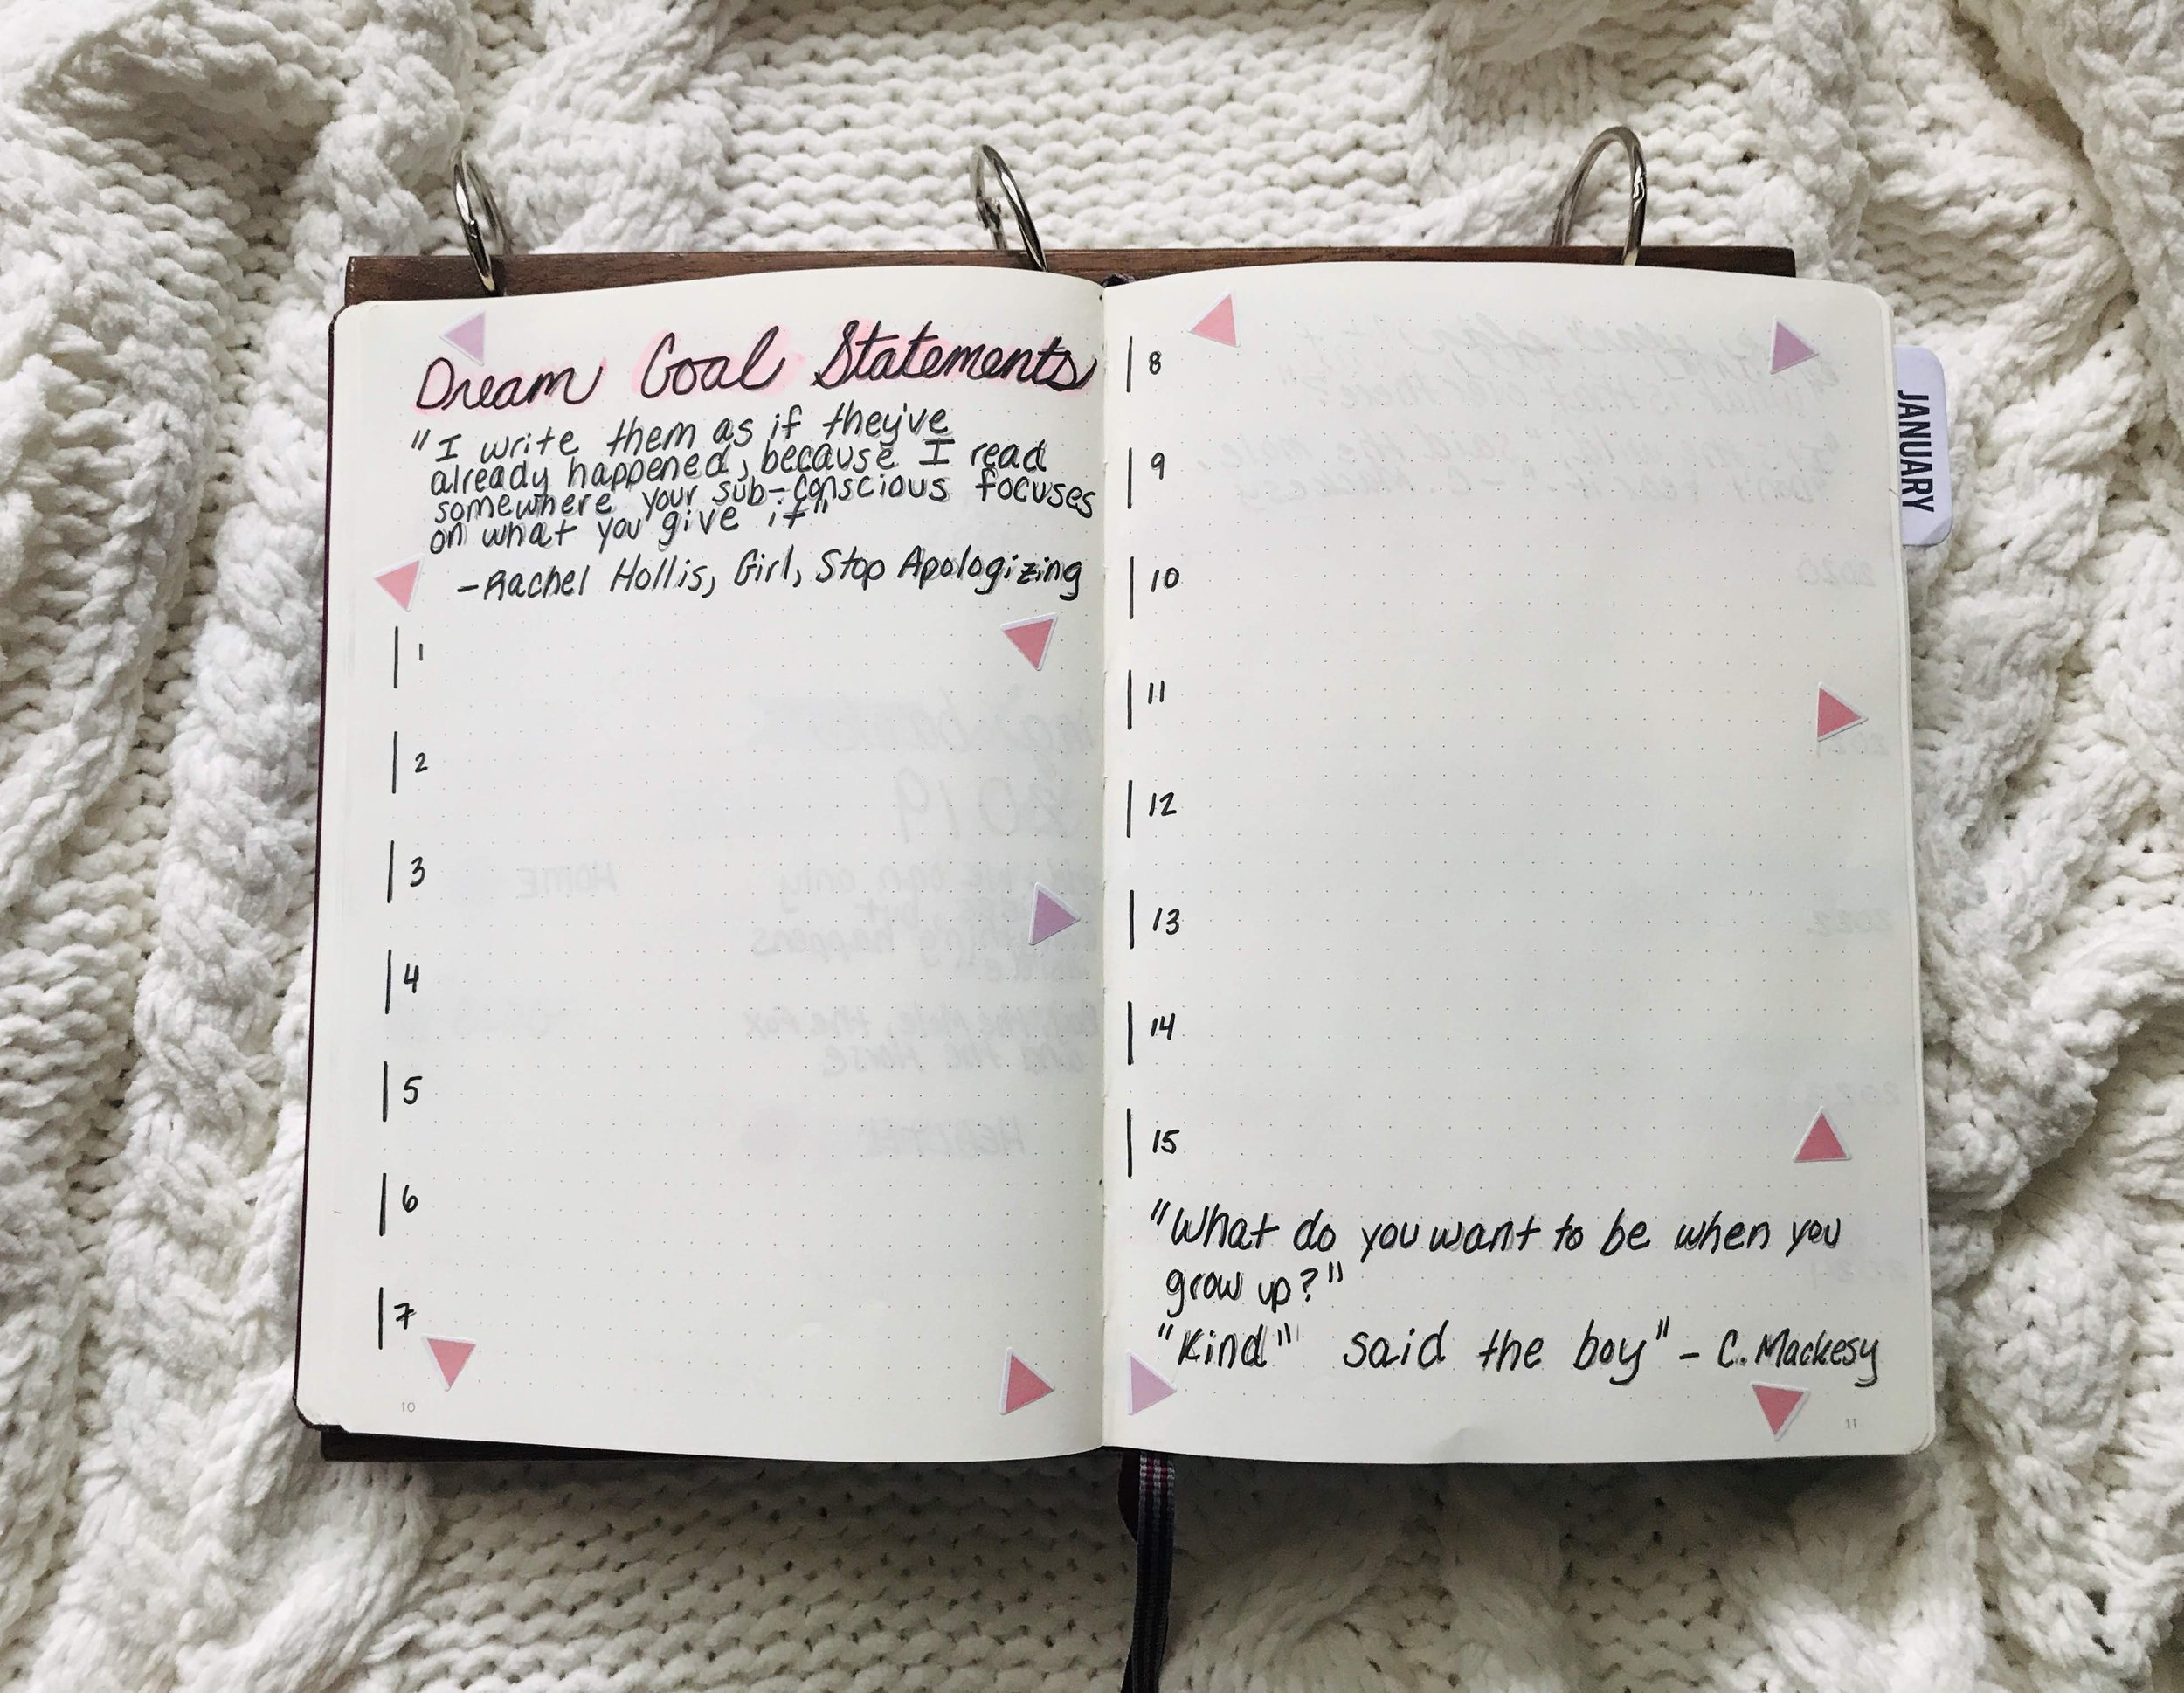 Dream Goal Statements
"I write them as if they've
already happened, because I read
somewhere your sub-conscious focuses
on what you give it"
-Rachel Hollis, Girl, Stop Apologizing
1
2
3
4
5
6
7
10
8
9
10
11
12
13
14
15
"What do you want to be when you
grow up?"
"Kind" said the boy" - C. Mackesy
11
JANUARY